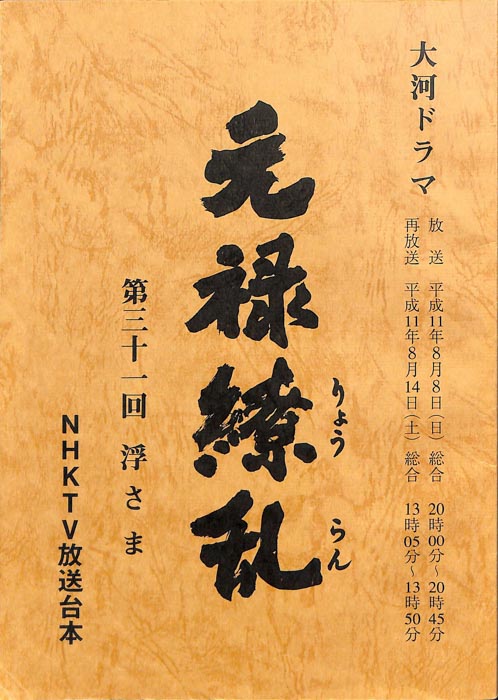 大河ドラマ
放送 平成11年8月8日（日） 総合 20時00分～20時45分
再放送 平成11年8月14日（土） 総合 13時05分～13時50分
元禄繚乱
りょう らん
第三十一回 浮さま
NHKTV放送台本